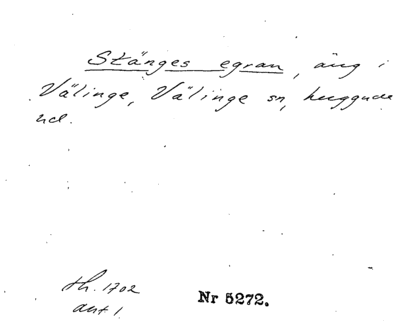 Stänges egran, äng i
Välinge, Välinge sn, Luggude
hd.
th. 1702
akt 1
Nr 5272.